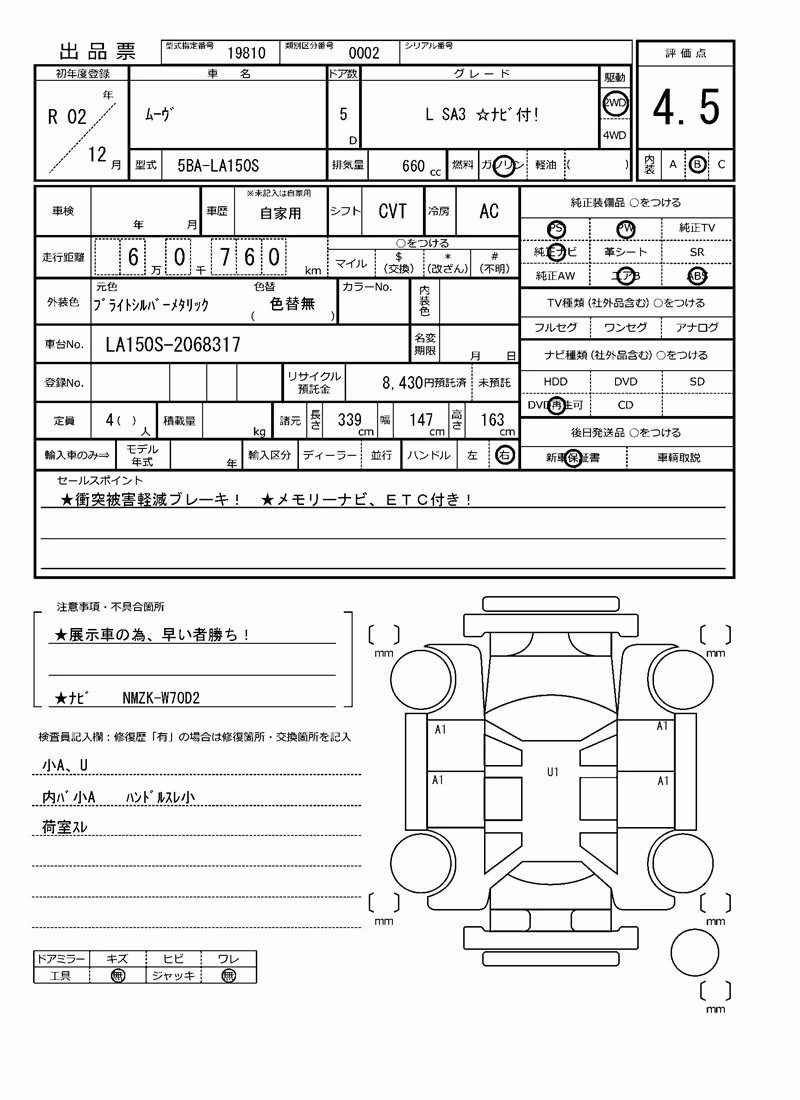 出品票 型式指定番号 19810 類別区分番号 0002 シリアル番号
評価点
4.5
内装 A B C
初年度登録 車名 ドア数 グレード 駆動
R 02 年 12 月 ﾑｰｳﾞ 5 D L SA3 ☆ﾅﾋﾞ付! 2WD
4WD
型式 5BA-LA150S 排気量 660 cc 燃料 ガソリン 軽油 ( )
車検 年 月 車歴 ※未記入は自家用 自家用 シフト CVT 冷房 AC
走行距離 6 万 0 千 7 6 0 km ○をつける
マイル $(交換) *(改ざん) #(不明)
外装色 元色 ﾌﾞﾗｲﾄｼﾙﾊﾞｰﾒﾀﾘｯｸ 色替 ( 色替無 ) カラーNo. 内装色
車台No. LA150S-2068317 名変期限 月 日
登録No. リサイクル預託金 8,430円預託済 未預託
定員 4 ( ) 人 積載量 kg 諸元 長さ 339 cm 幅 147 cm 高さ 163 cm
輸入車のみ⇒ モデル年式 年 輸入区分 ディーラー 並行 ハンドル 左 右
純正装備品 ○をつける
PS PW 純正TV
純正ナビ 革シート SR
純正AW エアB ABS
TV種類(社外品含む)○をつける
フルセグ ワンセグ アナログ
ナビ種類(社外品含む)○をつける
HDD DVD SD
DVD再生可 CD
後日発送品 ○をつける
新車保証書 車輌取説
セールスポイント
★衝突被害軽減ブレーキ! ★メモリーナビ、ETC付き!
注意事項・不具合箇所
★展示車の為、早い者勝ち!
★ﾅﾋﾞ NMZK-W70D2
検査員記入欄:修復歴「有」の場合は修復箇所・交換箇所を記入
小A、U
内ﾊﾞ小A ﾊﾝﾄﾞﾙｽﾚ小
荷室ｽﾚ
ドアミラー キズ ヒビ ワレ
工具 無 ジャッキ 無
mm mm
A1 A1
U1
A1 A1
mm mm
mm